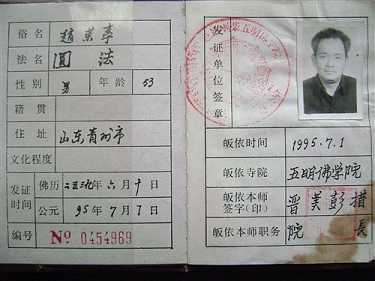 俗名 趙荣亭
法名 圆法
性别 男 年龄 53
籍贯
住址 山东青州市
文化程度
发证时间 佛历 二五三九年 六月 十日
公元 95年 7月 7日
编号 № 0454969
发证单位签章
皈依时间 1995.7.1
皈依寺院 五明佛学院
皈依本师签字(印) 晋美彭措
皈依本师职务 院長